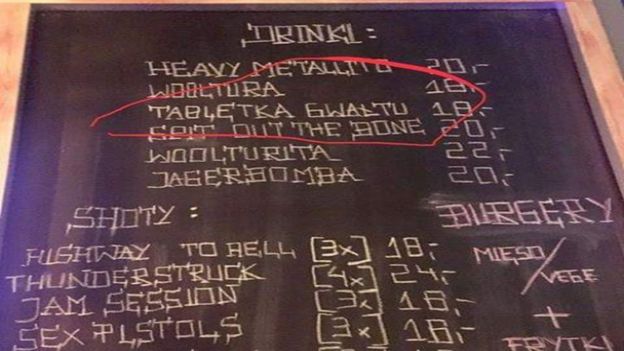 DRINKI:
HEAVY METALLITO 20,-
WOOLTURA 18,-
TABLETKA GWAŁTU 18,-
SPIT OUT THE BONE 20,-
WOOLTURITA 22,-
JAGERBOMBA 20,-
SHOTY:
HIGHWAY TO HELL [3x] 18,-
THUNDERSTRUCK [4x] 24,-
JAM SESSION [3x] 16,-
SEX PISTOLS [3x] 16,-
BURGERY
MIĘSO/
VEGE
+
FRYTKI